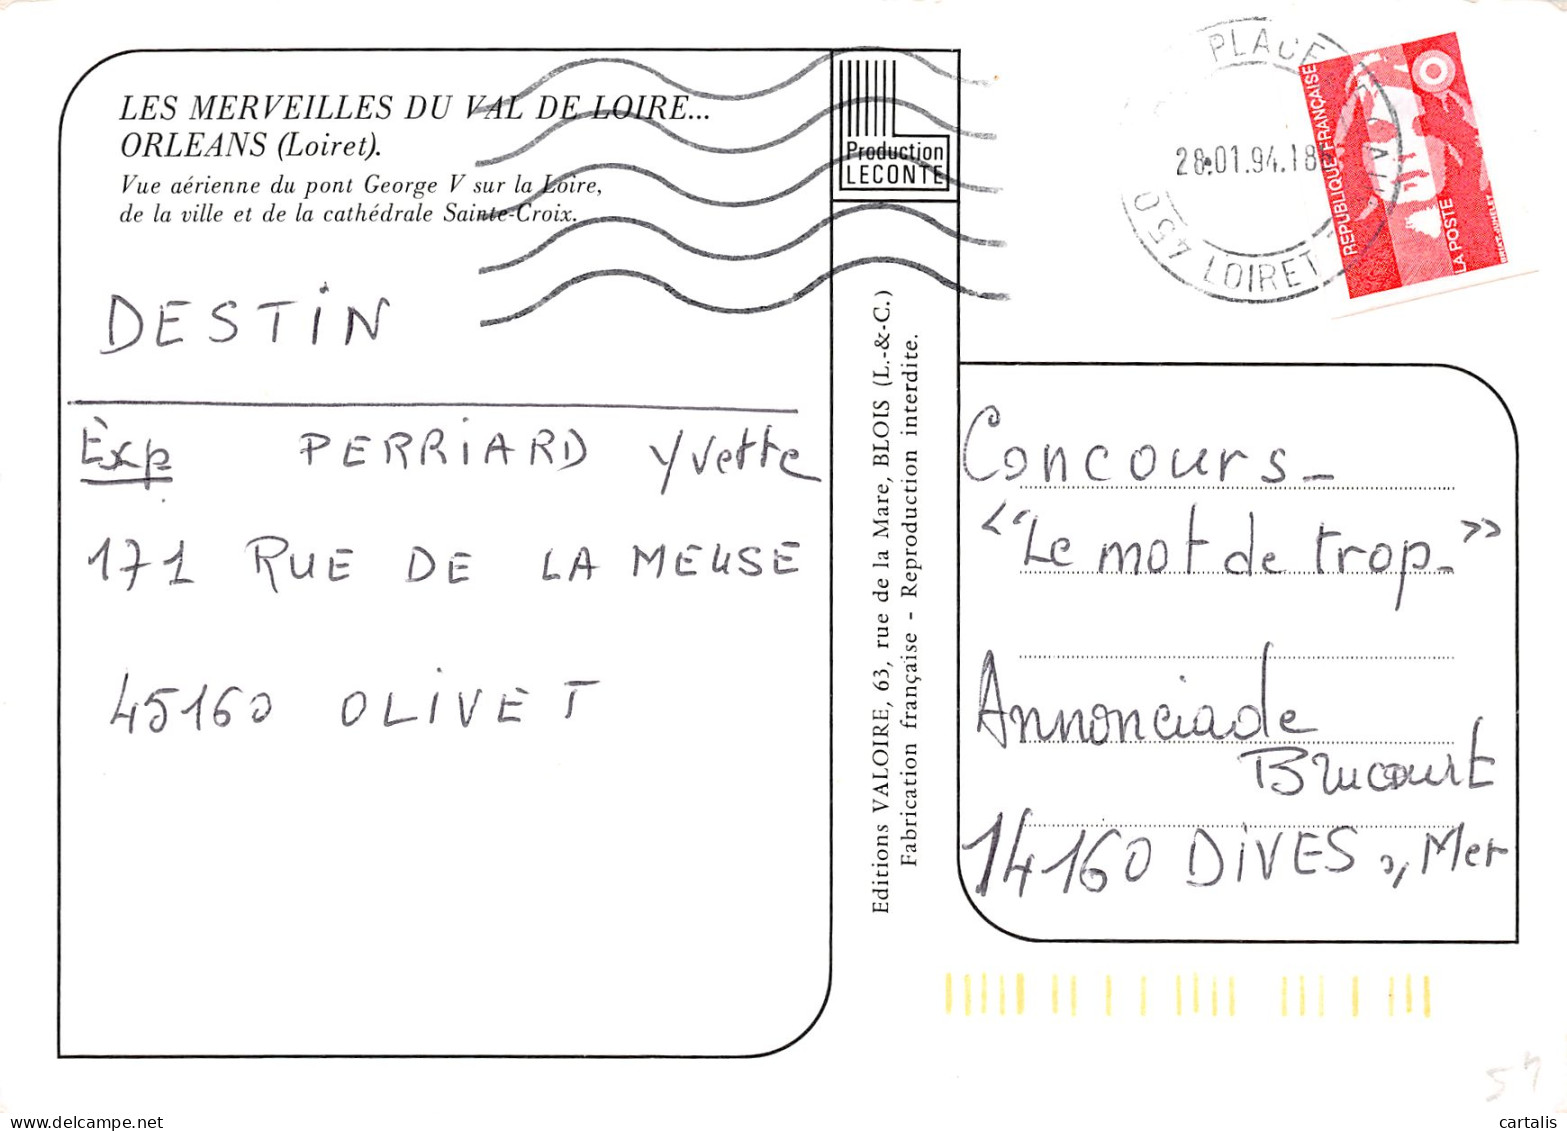 LES MERVEILLES DU VAL DE LOIRE...
ORLEANS (Loiret).
Vue aérienne du pont George V sur la Loire,
de la ville et de la cathédrale Sainte-Croix.
DESTIN
Exp PERRIARD Yvette
171 RUE DE LA MEUSE
45160 OLIVET
Production
LECONTE
Editions VALOIRE, 63, rue de la Mare, BLOIS (L.-&-C.)
Fabrication française - Reproduction interdite.
PLACE
28.01.94.18
450 LOIRET
REPUBLIQUE FRANÇAISE
LA POSTE
Concours_
"Le mot de trop_"
Annonciade
Brucourt
14160 DIVES s, Mer
51
cartalis